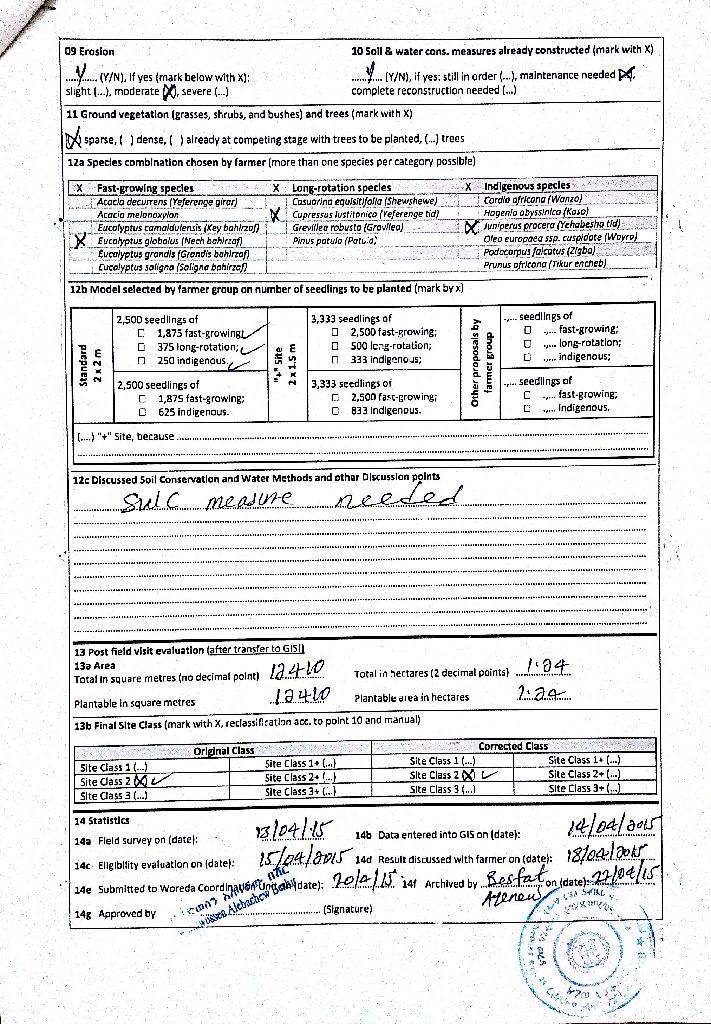 09 Erosion
10 Soil & water cons. measures already constructed (mark with X)
...Y... (Y/N), If yes (mark below with X):
...Y... (Y/N), if yes: still in order (...), maintenance needed (X),
slight (...), moderate (X), severe (...)
complete reconstruction needed (...)
11 Ground vegetation (grasses, shrubs, and bushes) and trees (mark with X)
(X) sparse, ( ) dense, ( ) already at competing stage with trees to be planted, (...) trees
12a Species combination chosen by farmer (more than one species per category possible)
X Fast-growing species X Long-rotation species X Indigenous species
Acacia decurrens (Yeferenge girar) Casuarina equisitifolia (Shewshewe) Cordia africana (Wanza)
Acacia melanoxylon X Cupressus lustitonica (Yeferenge tid) Hagenia abyssinica (Koso)
Eucalyptus camaldulensis (Key bahirzaf) Grevillea robusta (Gravilea) X Juniperus procera (Yehabesha tid)
X Eucalyptus globolus (Nech bahirzaf) Pinus patula (Patula) Olea europaea ssp. cuspidate (Woyra)
Eucalyptus grandis (Grandis bahirzaf) Podocarpus falcatus (Zigba)
Eucalyptus saligna (Saligna bahirzaf) Prunus africana (Tikur encheb)
12b Model selected by farmer group on number of seedlings to be planted (mark by x)
Standard 2 x 2 m
2,500 seedlings of
□ 1,875 fast-growing; ✓
□ 375 long-rotation; ✓
□ 250 indigenous. ✓
2,500 seedlings of
□ 1,875 fast-growing;
□ 625 indigenous.
"+" Site 2 x 1.5 m
3,333 seedlings of
□ 2,500 fast-growing;
□ 500 long-rotation;
□ 333 indigenous;
3,333 seedlings of
□ 2,500 fast-growing;
□ 833 indigenous.
Other proposals by farmer group
..... seedlings of
□ ..... fast-growing;
□ ..... long-rotation;
□ ..... indigenous;
..... seedlings of
□ ..... fast-growing;
□ ..... indigenous.
(....) "+" Site, because
12c Discussed Soil Conservation and Water Methods and other Discussion points
SWC measure needed
13 Post field visit evaluation (after transfer to GIS!)
13a Area
Total in square metres (no decimal point) 12410 Total in hectares (2 decimal points) 1.24
Plantable in square metres 12410 Plantable area in hectares 1.24
13b Final Site Class (mark with X, reclassification acc. to point 10 and manual)
Original Class Corrected Class
Site Class 1 (...) Site Class 1+ (...) Site Class 1 (...) Site Class 1+ (...)
Site Class 2 (X) ✓ Site Class 2+ (...) Site Class 2 (X) ✓ Site Class 2+ (...)
Site Class 3 (...) Site Class 3+ (...) Site Class 3 (...) Site Class 3+ (...)
14 Statistics
14a Field survey on (date): 13/04/15 14b Data entered into GIS on (date): 14/04/2015
14c Eligibility evaluation on (date): 15/04/2015 14d Result discussed with farmer on (date): 18/04/2015
14e Submitted to Woreda Coordination Unit on (date): 20/4/15 14f Archived by Besfat on (date): 22/04/15
14g Approved by (Signature)
Alebachew